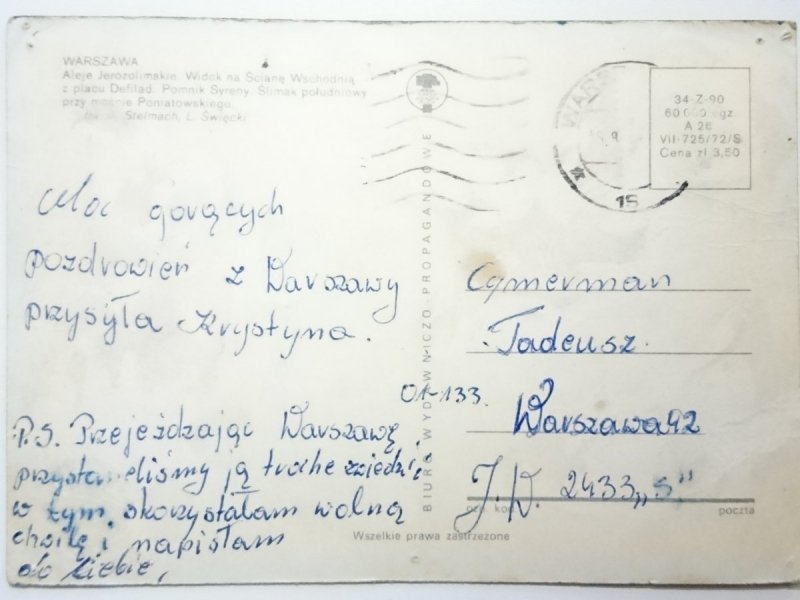 WARSZAWA
Aleje Jerozolimskie. Widok na Ścianę Wschodnią
z placu Defilad. Pomnik Syreny. Ślimak południowy
przy moście Poniatowskiego.
Stelmach, L. Święcki
34-Z-90
60 000 egz.
A 26
VII-725/72/S
Cena zł 3,50
WARS
15
BIURO WYDAWNICZO-PROPAGANDOWE
Moc gorących
pozdrowień z Warszawy
przysyła Krystyna.
P.S. Przejeżdzając Warszawę
przystaneliśmy ją troche zwiedzić
w tym skorzystałam wolną
chwilę i napisłam
do Ciebie,
Cymerman
Tadeusz.
01-133.
Warszawa 42
J.W. 2433 „s"
kod
poczta
Wszelkie prawa zastrzeżone